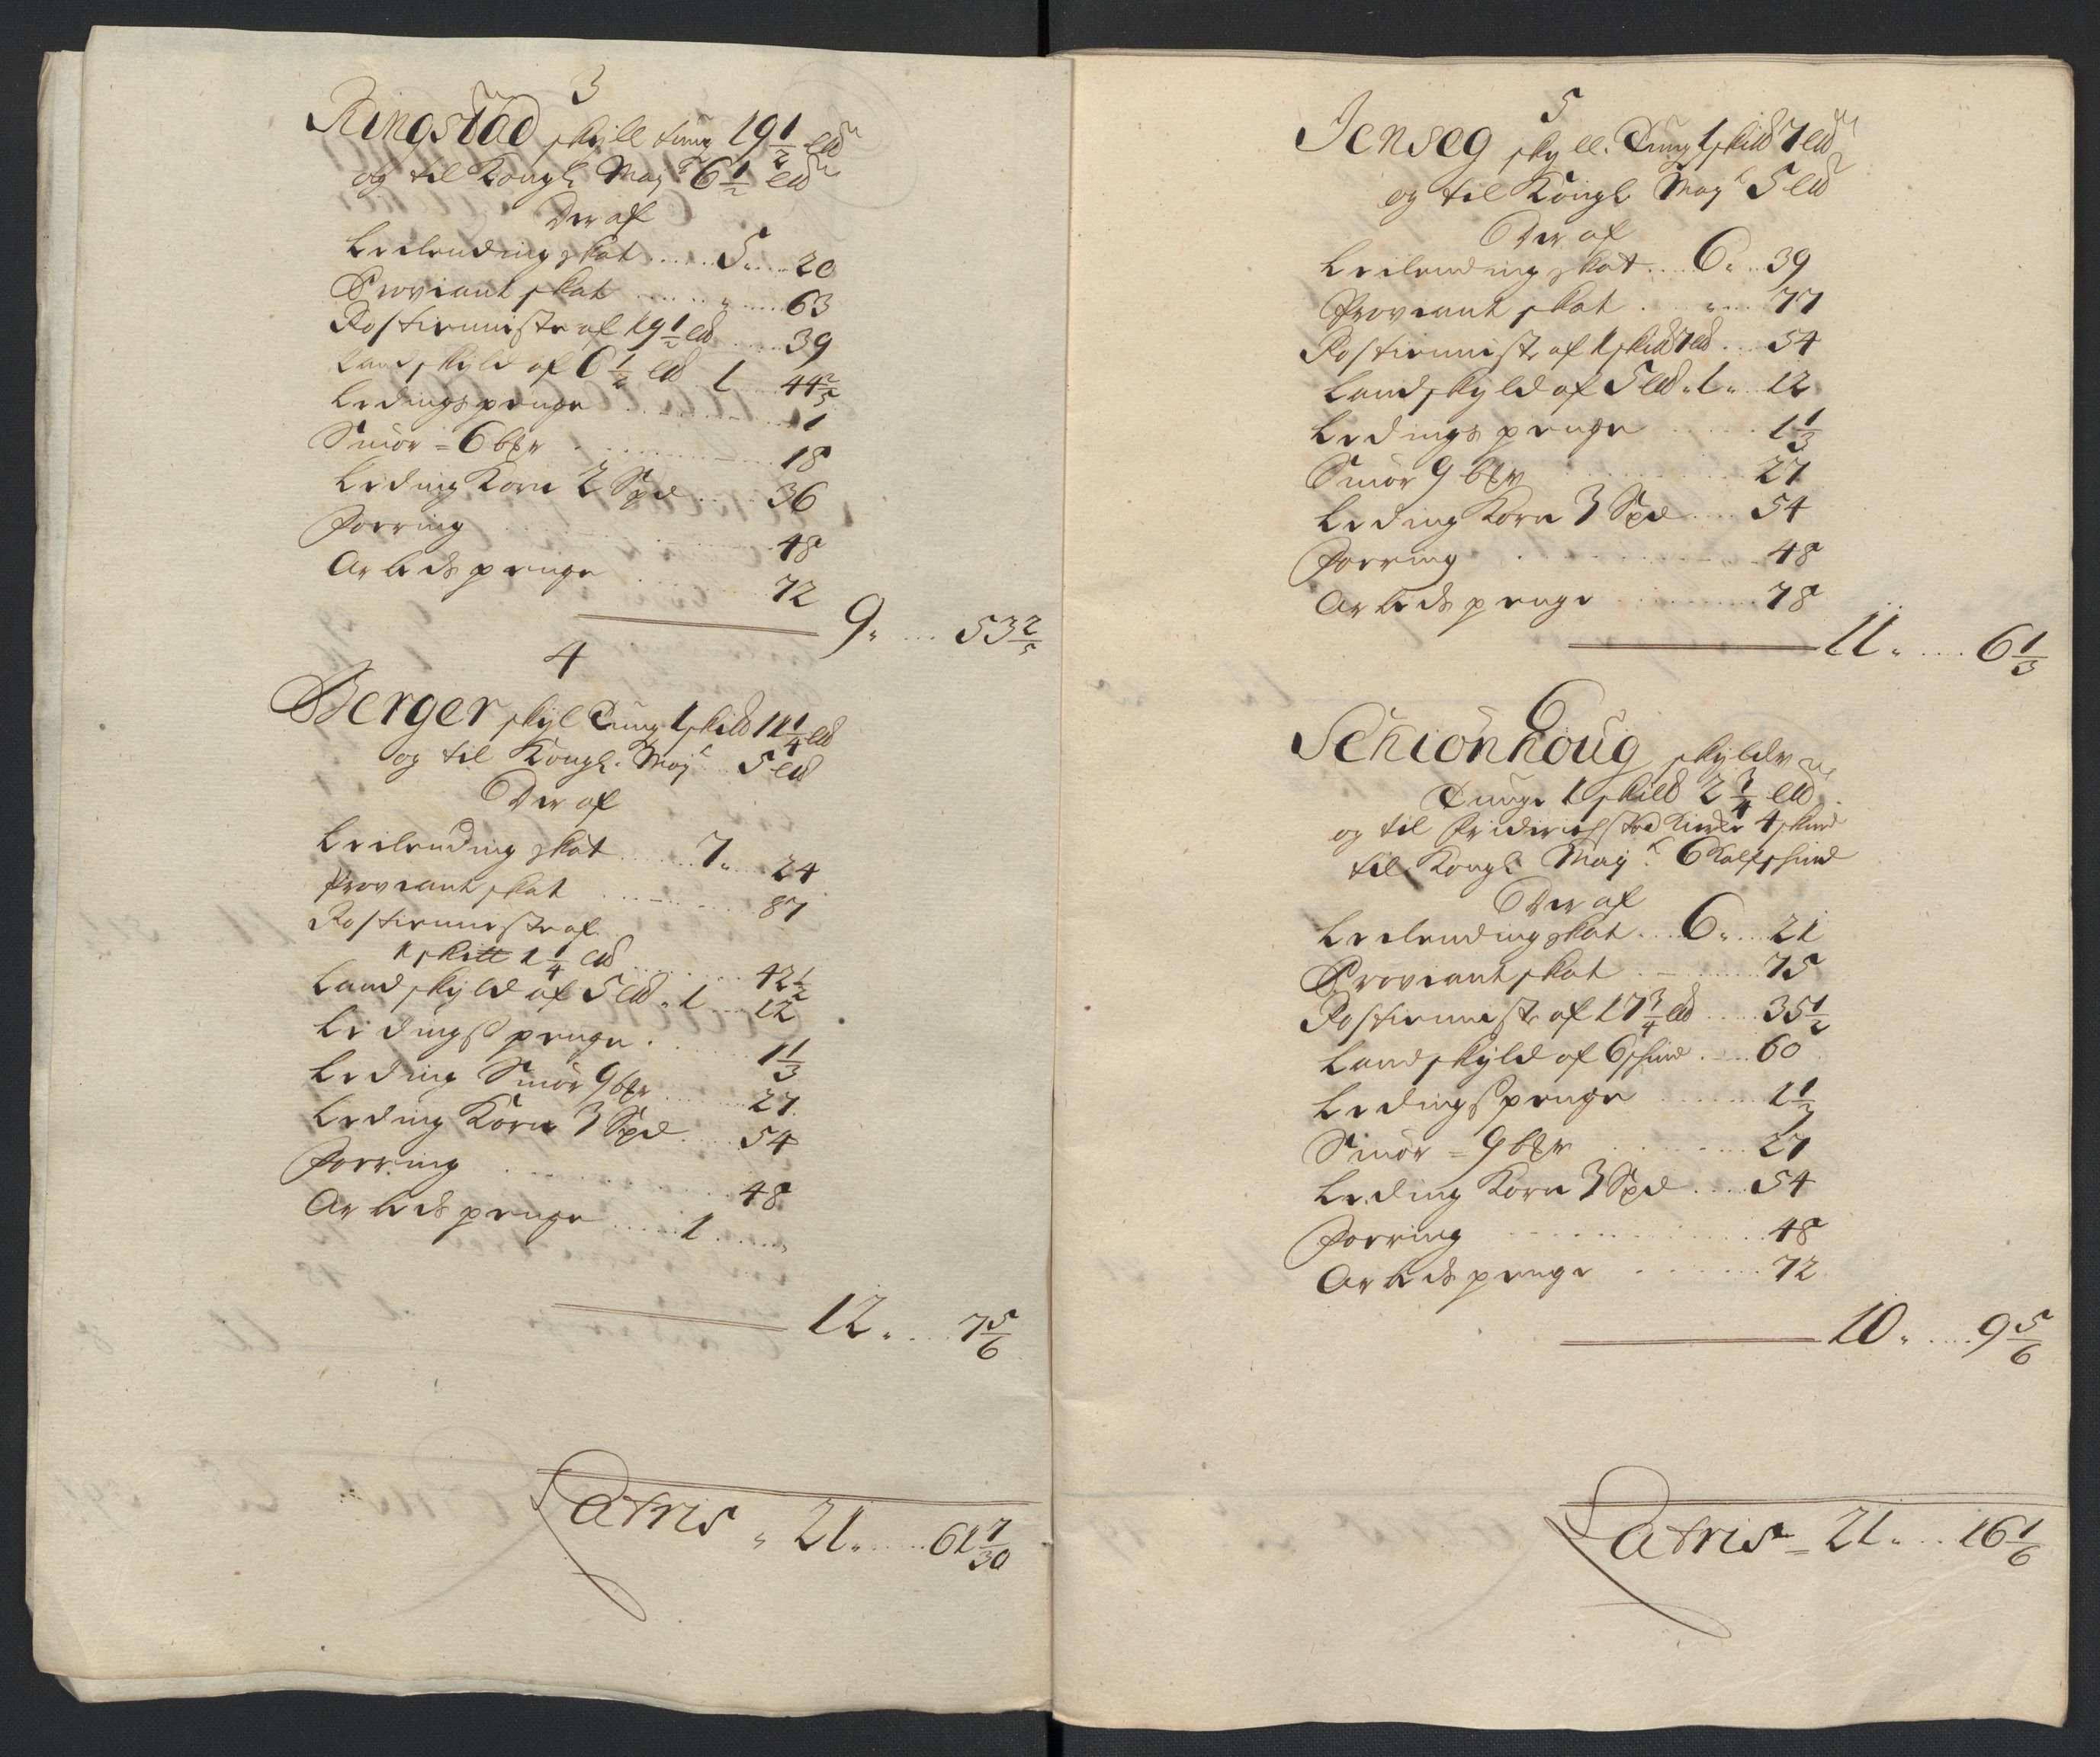 3
Ringstad skyll tung 19 1/2 ℔
og til Kongl. May 6 1/2 ℔
Der af
Leilending skat ..... 5 .. 20
Proviant skat ..... „ ..... 63
Rostienniste af 19 1/2 ℔ ..... 39
Landskyld af 6 1/2 ℔ 1 .. 44 2/5
Ledingspenge ..... 1
Smör = 6 ..... 18
Leding Korn 2 Spd ..... 36
Forring ..... 48
Arbeds penge ..... 72
9 „ ... 53 2/5
4
Berger skyl Tung 1 skild 11 1/4 ℔
og til Kongl. May 5 ℔
Der af
Leilending skat ..... 7 „ 24
Proviant skat ..... 87
Rostienniste af
1 skilt 1 1/4 ℔ ..... 42 1/2
Landskyld af 5 ℔ „ 1 ... 12
Ledings penge ..... 1 1/3
Leding Smör 9 ..... 27
Leding Korn 3 Spd ..... 54
Forring ..... 48
Arbeds penge ..... 1 ..... „
12 „ ... 7 5/6
Latris „ 21 „ ..... 61 7/30
5
Jenseg skyll. Tung 1 skild 7 ℔
og til Kongl. May 5 ℔
Der af
Leilending skat ... 6 „ .. 39
Proviant skat . „ ... 77
Rostienniste af 1 skild 7 ℔ ... 54
Landskyld af 5 ℔ „ 1 „ 12
Ledings penge ..... 1 1/3
Smör 9 ..... 27
Leding Korn 3 Spd ..... 54
Forring ..... 48
Arbeds penge ..... 78
11 „ .... 6 1/3
6
Schionhoug skylder
Tunge 1 skild 2 3/4 ℔
og til Fridrichstad Kirke 4 skind
til Kongl. May 6 Kalfskind
Der af
Leilending skat ... 6 „ ... 21
Proviant skat ..... 75
Rostienniste af 17 3/4 ℔ ..... 35 1/2
Landskyld af 6 skind ..... 60
Ledings penge ..... 1 1/3
Smör = 9 ..... 27
Leding Korn 3 Spd .... 54
Forring ..... 48
Arbeds penge ..... 72
10 „ ..... 9 5/6
Latris = 21 „ ... 16 1/6